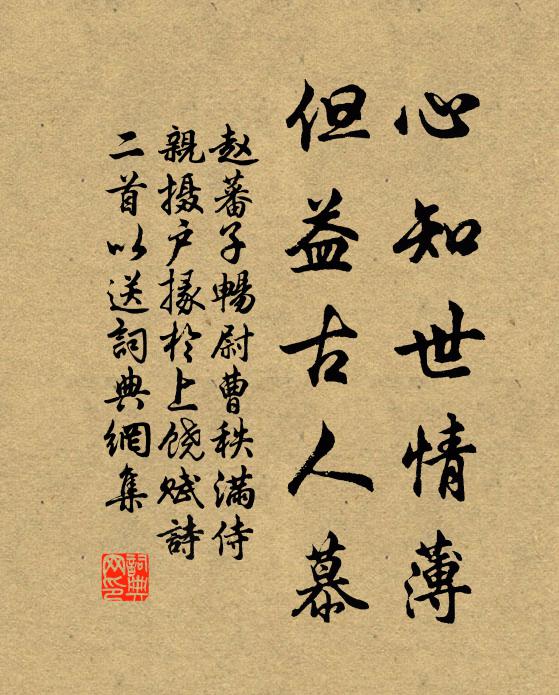 心知世情薄
但益古人慕
赵蕃子暢尉曹秩满侍
親摄户掾於上饶赋詩
二首以送詞典網集
詞典
网印